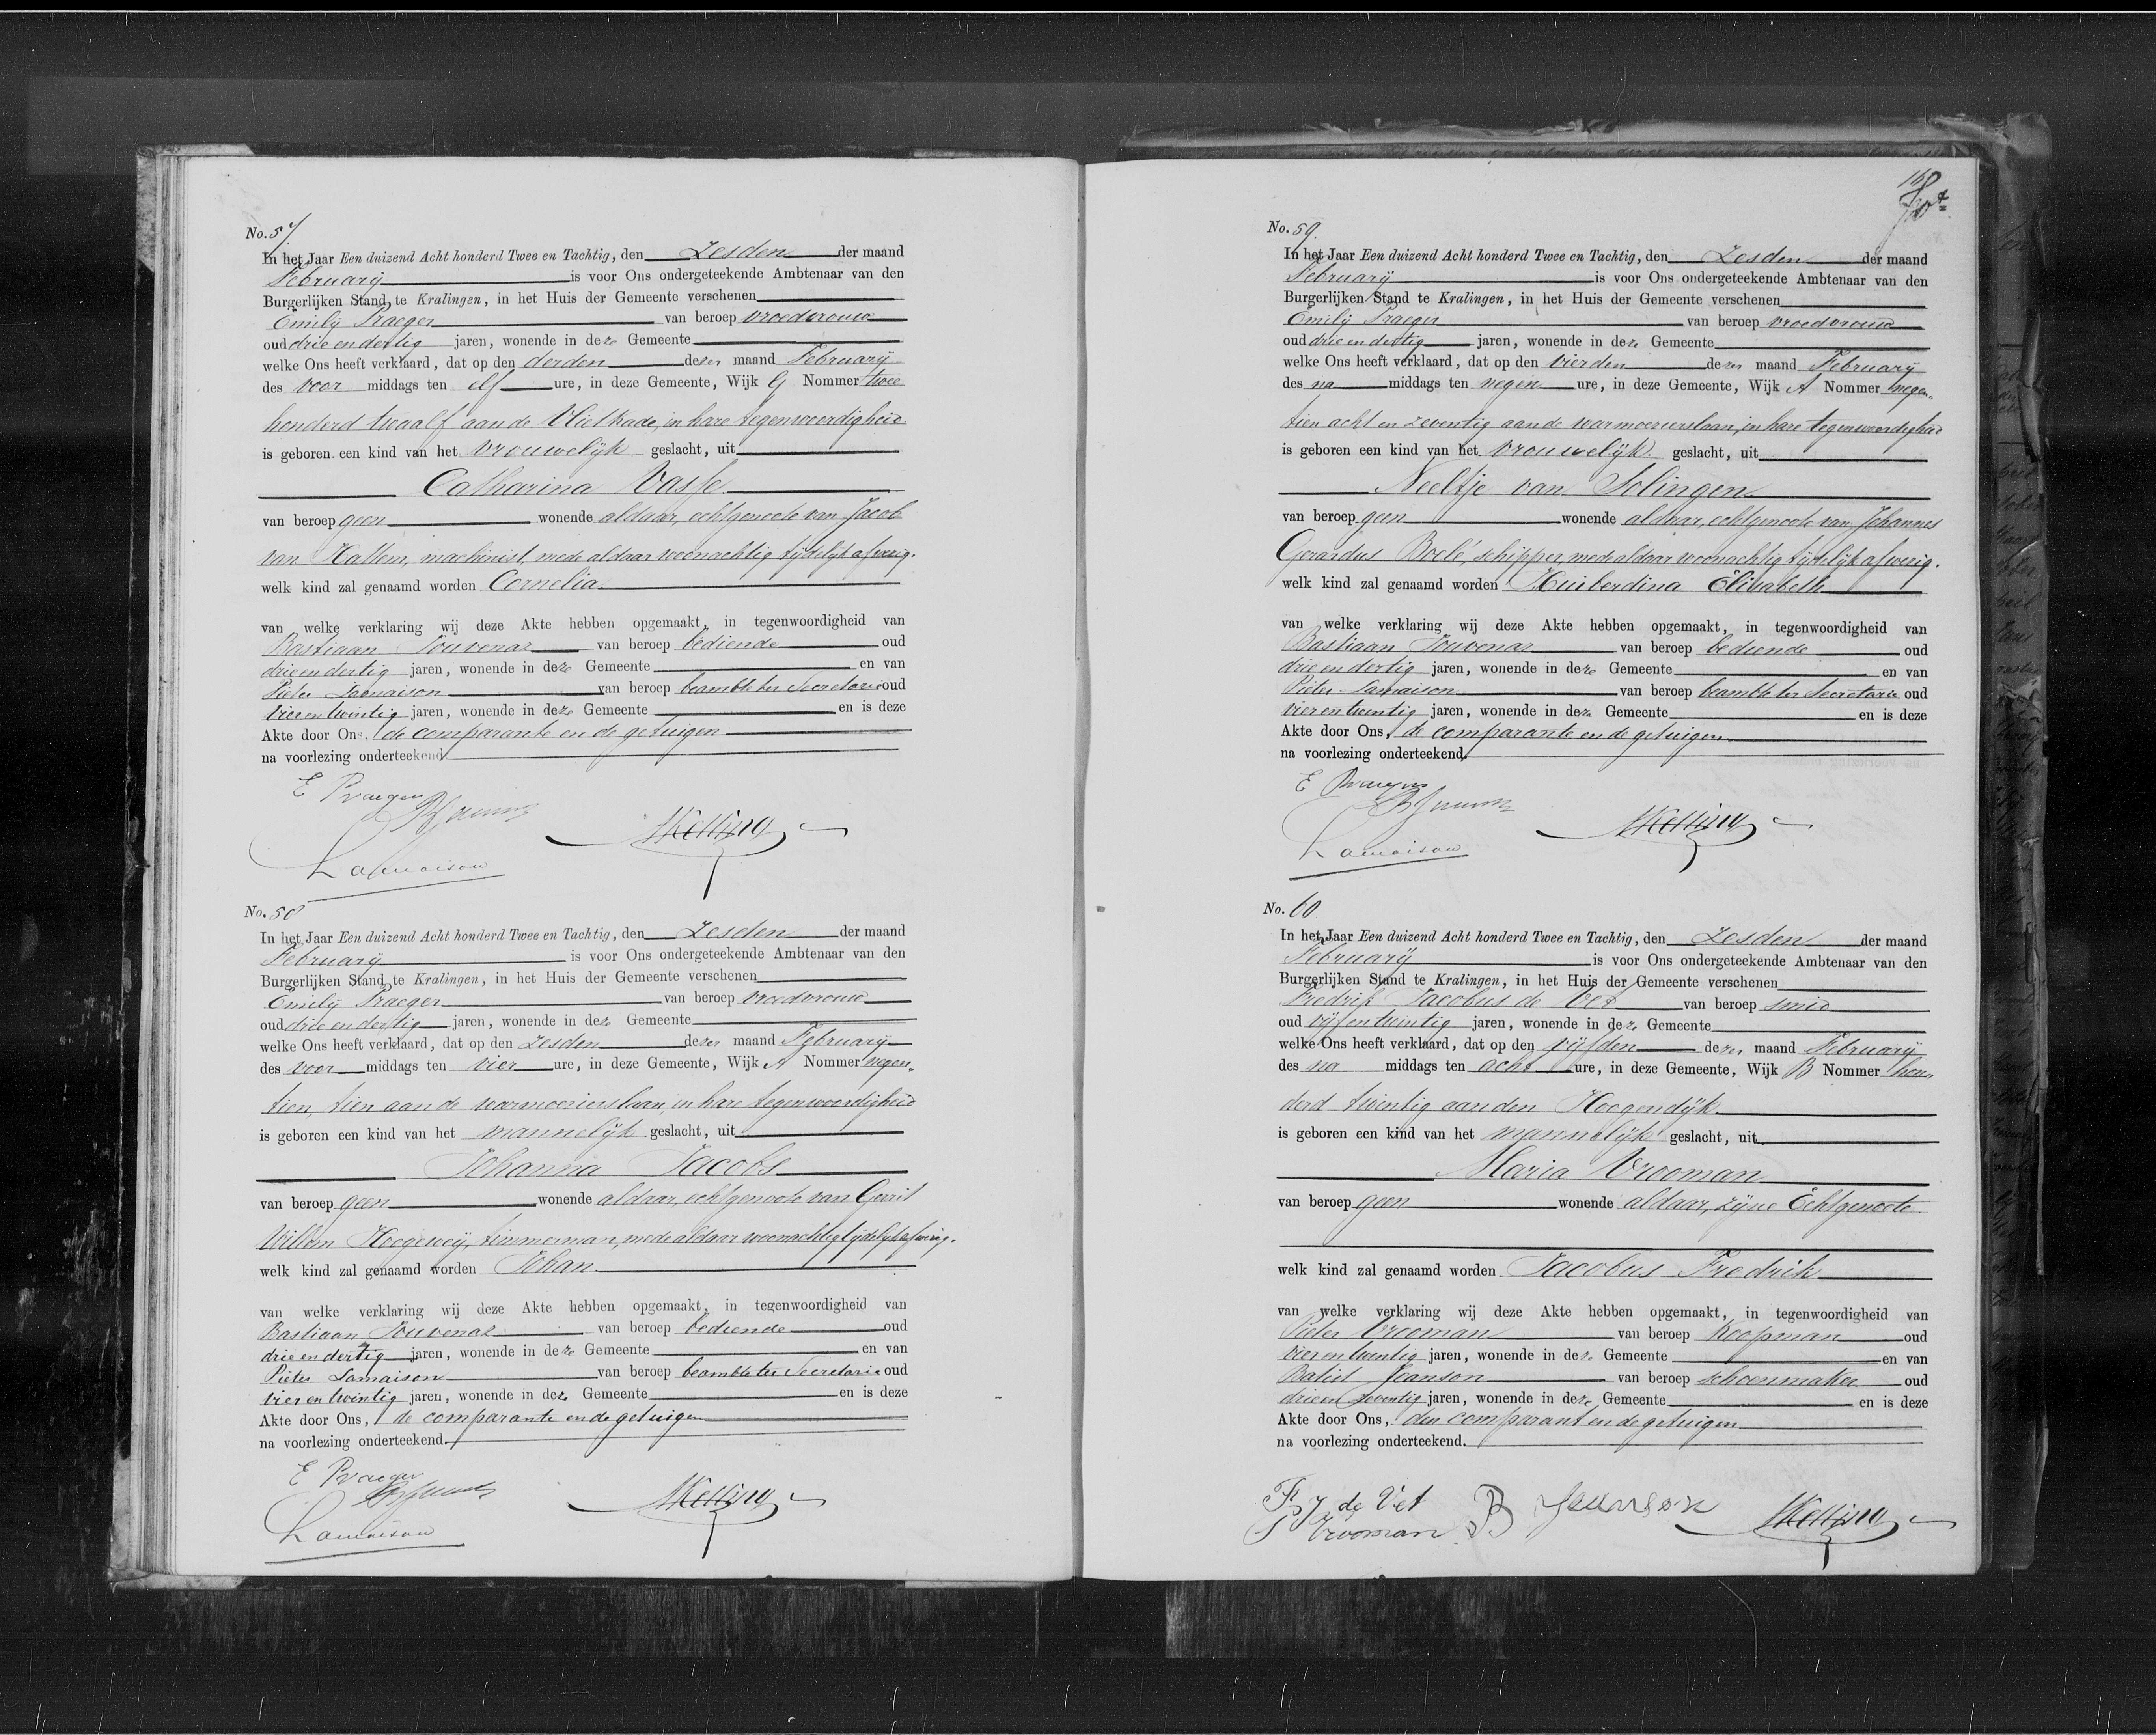 No. 57
In het Jaar Een duizend Acht honderd Twee en Tachtig, den Zesden der maand
Februarij is voor Ons ondergeteekende Ambtenaar van den
Burgerlijken Stand te Kralingen, in het Huis der Gemeente verschenen
Emilij Praeger van beroep vroedvrouw
oud drie en dertig jaren, wonende in deze Gemeente
welke Ons heeft verklaard, dat op den derden dezer maand Februarij
des voor middags ten elf ure, in deze Gemeente, Wijk G Nommer twee
honderd twaalf aan de Vlietkade, in hare tegenwoordigheid
is geboren een kind van het vrouwelijk geslacht, uit
Catharina Vasse
van beroep geen wonende aldaar, echtgenoote van Jacob
van Hattem, machinist, mede aldaar woonachtig tijdelijk afwezig.
welk kind zal genaamd worden Cornelia
van welke verklaring wij deze Akte hebben opgemaakt, in tegenwoordigheid van
Bastiaan Jouvenaz van beroep bediende oud
drie en dertig jaren, wonende in deze Gemeente en van
Pieter Lamaison van beroep beambte ter Secretarie oud
vier en twintig jaren, wonende in deze Gemeente en is deze
Akte door Ons, de comparante en de getuigen
na voorlezing onderteekend
E Praeger
Lamaison
No. 58
In het Jaar Een duizend Acht honderd Twee en Tachtig, den Zesden der maand
Februarij is voor Ons ondergeteekende Ambtenaar van den
Burgerlijken Stand te Kralingen, in het Huis der Gemeente verschenen
Emilij Praeger van beroep vroedvrouw
oud drie en dertig jaren, wonende in deze Gemeente
welke Ons heeft verklaard, dat op den Zesden dezer maand Februarij
des voor middags ten vier ure, in deze Gemeente, Wijk A Nommer negen-
tien, tien aan de warmoezierslaan, in hare tegenwoordigheid
is geboren een kind van het mannelijk geslacht, uit
Johanna Jacobs
van beroep geen wonende aldaar, echtgenoote van Gerrit
Willem Hoogeweij, timmerman, mede aldaar woonachtig tijdelijk afwezig.
welk kind zal genaamd worden Johan
van welke verklaring wij deze Akte hebben opgemaakt, in tegenwoordigheid van
Bastiaan Jouvenaz van beroep bediende oud
drie en dertig jaren, wonende in deze Gemeente en van
Pieter Lamaison van beroep beambte ter Secretarie oud
vier en twintig jaren, wonende in deze Gemeente en is deze
Akte door Ons, de comparante en de getuigen
na voorlezing onderteekend.
E Praeger
Lamaison
No. 59.
In het Jaar Een duizend Acht honderd Twee en Tachtig, den Zesden der maand
Februarij is voor Ons ondergeteekende Ambtenaar van den
Burgerlijken Stand te Kralingen, in het Huis der Gemeente verschenen
Emilij Praeger van beroep vroedvrouw
oud drie en dertig jaren, wonende in deze Gemeente
welke Ons heeft verklaard, dat op den vierden dezer maand Februarij
des na middags ten negen ure, in deze Gemeente, Wijk A Nommer negen-
tien acht en zeventig aan de warmoezierslaan, in hare tegenwoordigheid
is geboren een kind van het vrouwelijk geslacht, uit
Neeltje van Solingen
van beroep geen wonende aldaar, echtgenoote van Johannes
Gerardus Boelé, schipper, mede aldaar woonachtig tijdelijk afwezig.
welk kind zal genaamd worden Huiberdina Elisabeth
van welke verklaring wij deze Akte hebben opgemaakt, in tegenwoordigheid van
Bastiaan Jouvenaz van beroep bediende oud
drie en dertig jaren, wonende in deze Gemeente en van
Pieter Lamaison van beroep beambte ter Secretarie oud
vier en twintig jaren, wonende in deze Gemeente en is deze
Akte door Ons, de comparante en de getuigen
na voorlezing onderteekend.
E Praeger
Lamaison
No. 60
In het Jaar Een duizend Acht honderd Twee en Tachtig, den Zesden der maand
Februarij is voor Ons ondergeteekende Ambtenaar van den
Burgerlijken Stand te Kralingen, in het Huis der Gemeente verschenen
Fredrik Jacobus de Vet van beroep smid
oud vijf en twintig jaren, wonende in deze Gemeente
welke Ons heeft verklaard, dat op den vijfden dezer maand Februarij
des na middags ten acht ure, in deze Gemeente, Wijk B Nommer hon-
derd twintig aan den Hoogendijk
is geboren een kind van het mannelijk geslacht, uit
Maria Vrooman
van beroep geen wonende aldaar, zijne Echtgenoote
welk kind zal genaamd worden Jacobus Fredrik
van welke verklaring wij deze Akte hebben opgemaakt, in tegenwoordigheid van
Pieter Vrooman van beroep Koopman oud
vier en twintig jaren, wonende in deze Gemeente en van
Batist Jeanson van beroep schoenmaker oud
drie en zeventig jaren, wonende in deze Gemeente en is deze
Akte door Ons, den comparant en de getuigen
na voorlezing onderteekend.
F J de Vet
P Vrooman B Jeanson